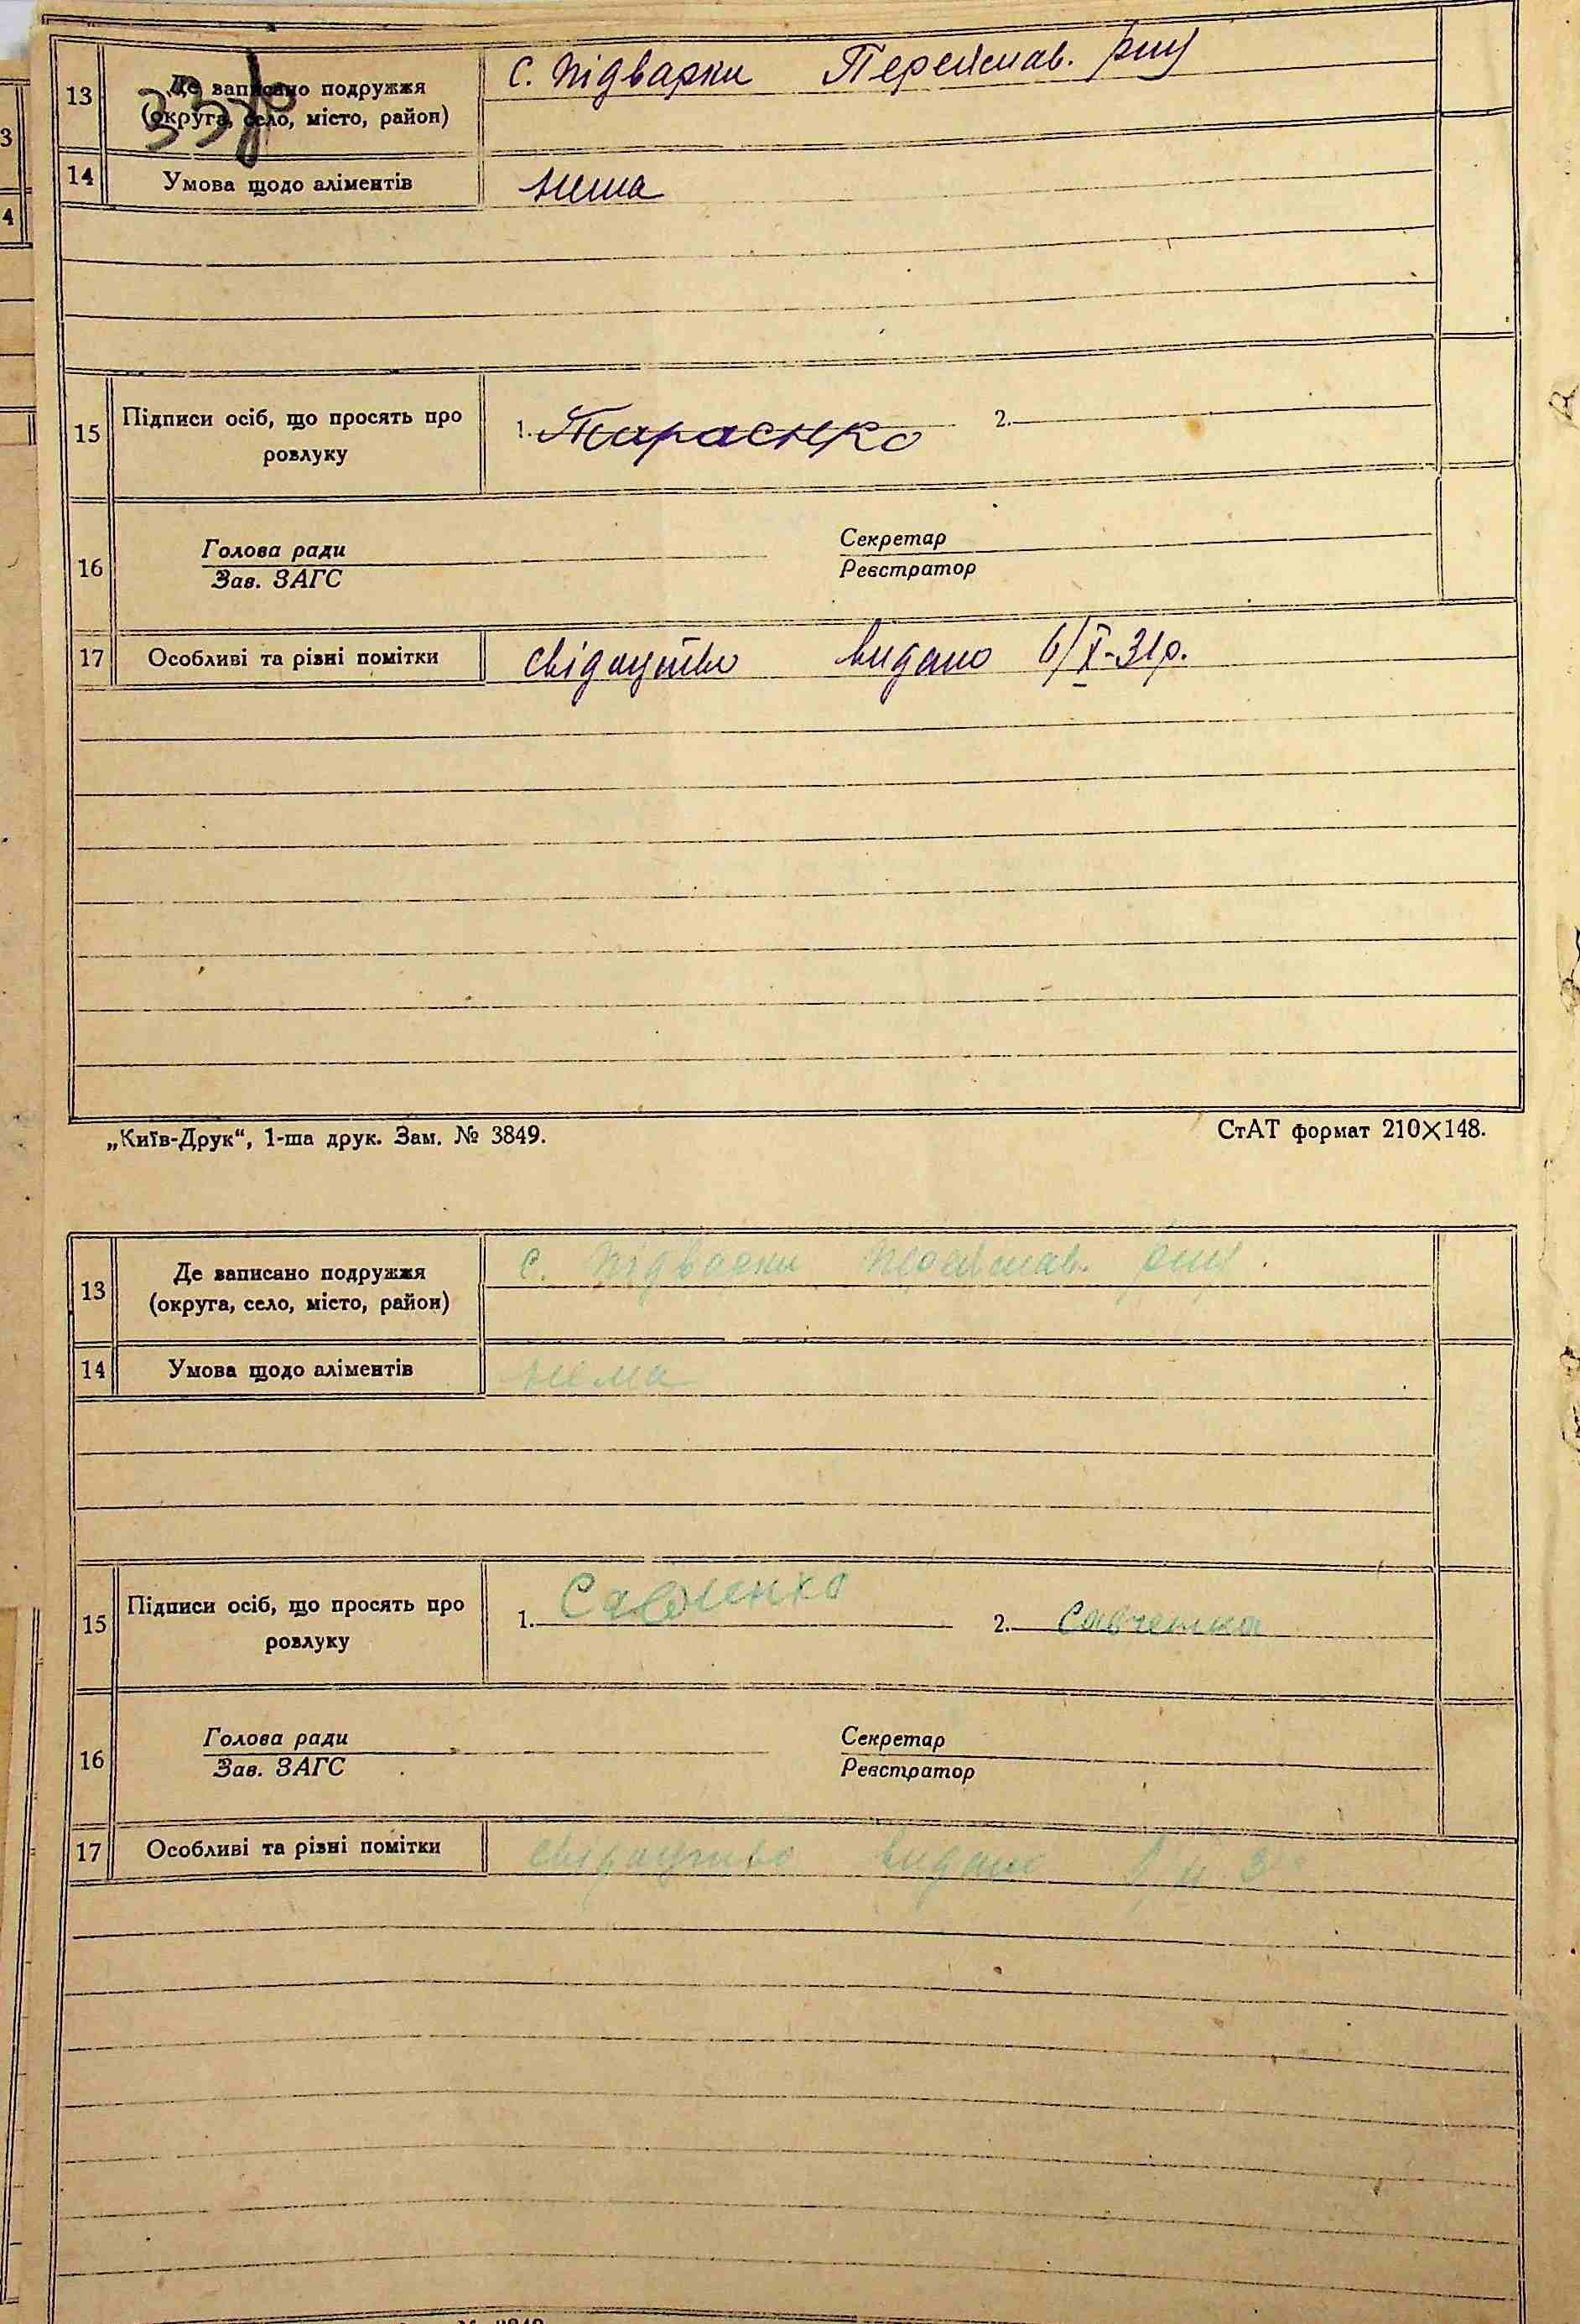 13 Де записано подружжя (округа, село, місто, район) с. Підварки Переяслав. р-ну
14 Умова щодо аліментів нема
15 Підписи осіб, що просять про розлуку 1. Тарасенко 2.
16 Голова ради Секретар
Зав. ЗАГС Реєстратор
17 Особливі та різні помітки свідоцтво видано 6/X-31р.
„Київ-Друк“, 1-ша друк. Зам. № 3849. СтАТ формат 210×148.
13 Де записано подружжя (округа, село, місто, район) с. Підварки Переяслав. р-ну
14 Умова щодо аліментів нема
15 Підписи осіб, що просять про розлуку 1. Савченко 2. Савченка
16 Голова ради Секретар
Зав. ЗАГС Реєстратор
17 Особливі та різні помітки свідоцтво видано